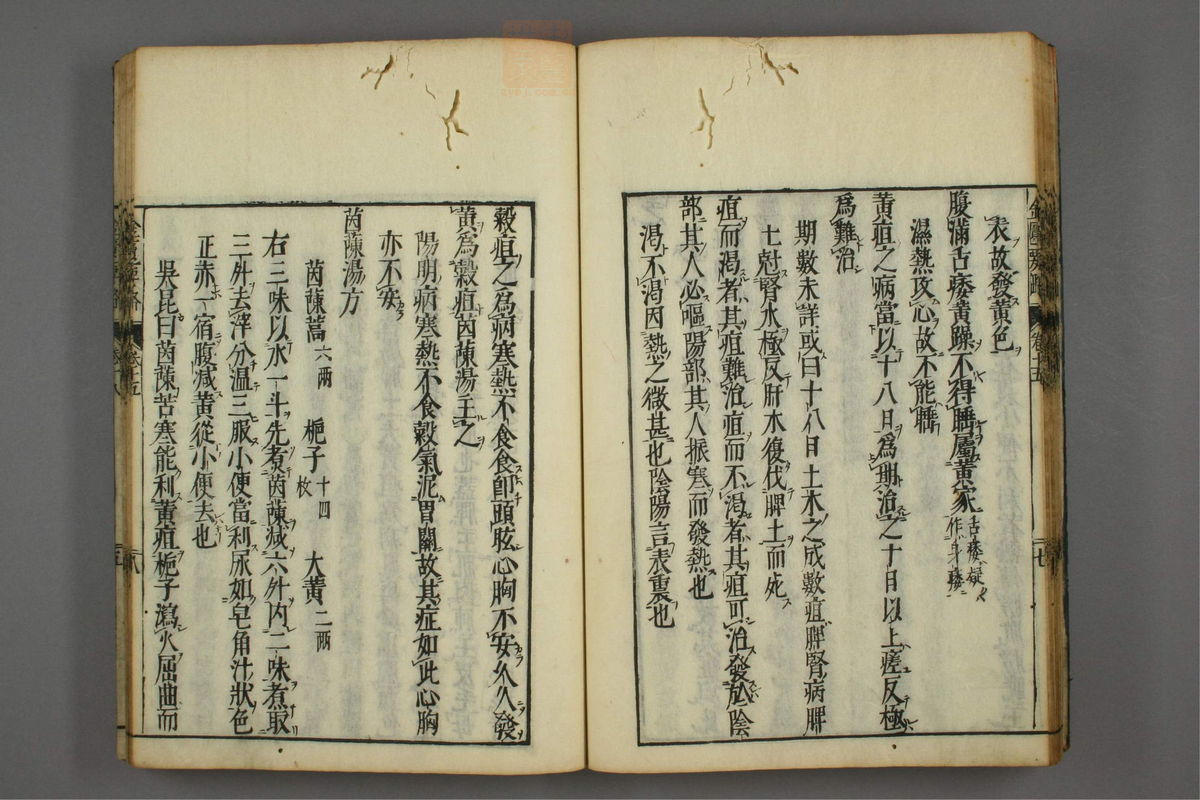 表故發黃色
腹滿舌痿黃躁不得睡屬黃家舌痿疑作身痿
濕熱攻心故不能睡
黃疸之病當以十八日爲期治之十日以上瘥反極
爲難治
期數未詳或曰十八日土木之成數疸脾腎病脾
七尅腎水極反肝木復伐脾土而死
疸而渴者其疸難治疸而不渴者其疸可治發於陰
部其人必嘔陽部其人振寒而發熱也
渴不渴因熱之微甚也陰陽言表裏也
穀疸之爲病寒熱不食食即頭眩心胸不安久久發
黃爲穀疸茵蔯湯主之
陽明病寒熱不食穀氣泥胃關故其症如此心胸
亦不安
茵蔯湯方
茵蔯蒿六兩 梔子十四枚 大黃二兩
右三味以水一斗先煮茵蔯減六升內二味煮取
三升去滓分溫三服小便當利尿如皂角汁狀色
正赤一宿腹減黃從小便去也
吳昆曰茵蔯苦寒能利黃疸梔子瀉火屈曲而